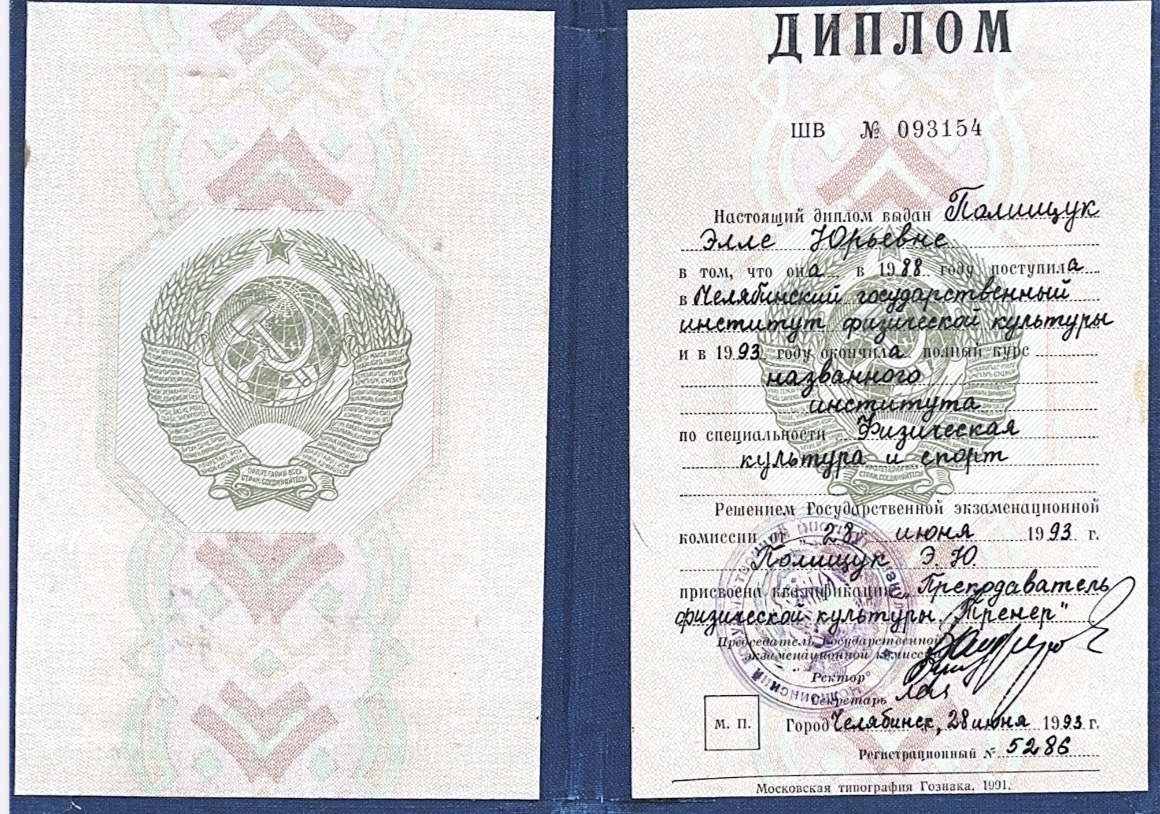 ПРОЛЕТАРИИ ВСЕХ
СТРАН, СОЕДИНЯЙТЕСЬ
ДИПЛОМ
ШВ № 093154
Настоящий диплом выдан Полищук
Элле Юрьевне
в том, что она в 1988 году поступила
в Челябинский государственный
институт физической культуры
и в 1993 году окончила полный курс
названного
института
по специальности Физическая
культура и спорт
Решением Государственной экзаменационной
комиссии от „28 июня 1993 г.
Полищук Э. Ю.
присвоена квалификация „Преподаватель
физической культуры. Тренер"
Председатель Государственной
экзаменационной комиссии
Ректор
Секретарь
М. П.
Город Челябинск, 28 июня 1993 г.
Регистрационный № 5286
Московская типография Гознака, 1991.